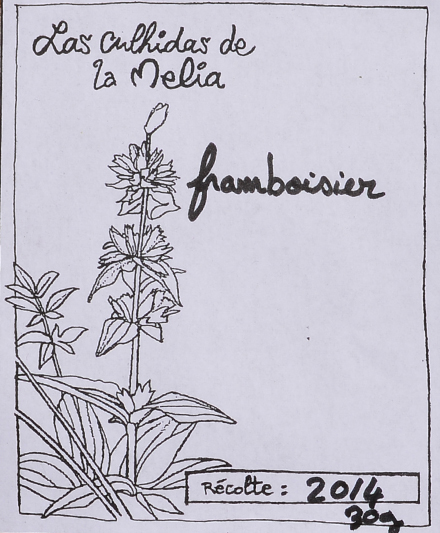 Las Culhidas de
la Melia
framboisier
Récolte : 2014
30g